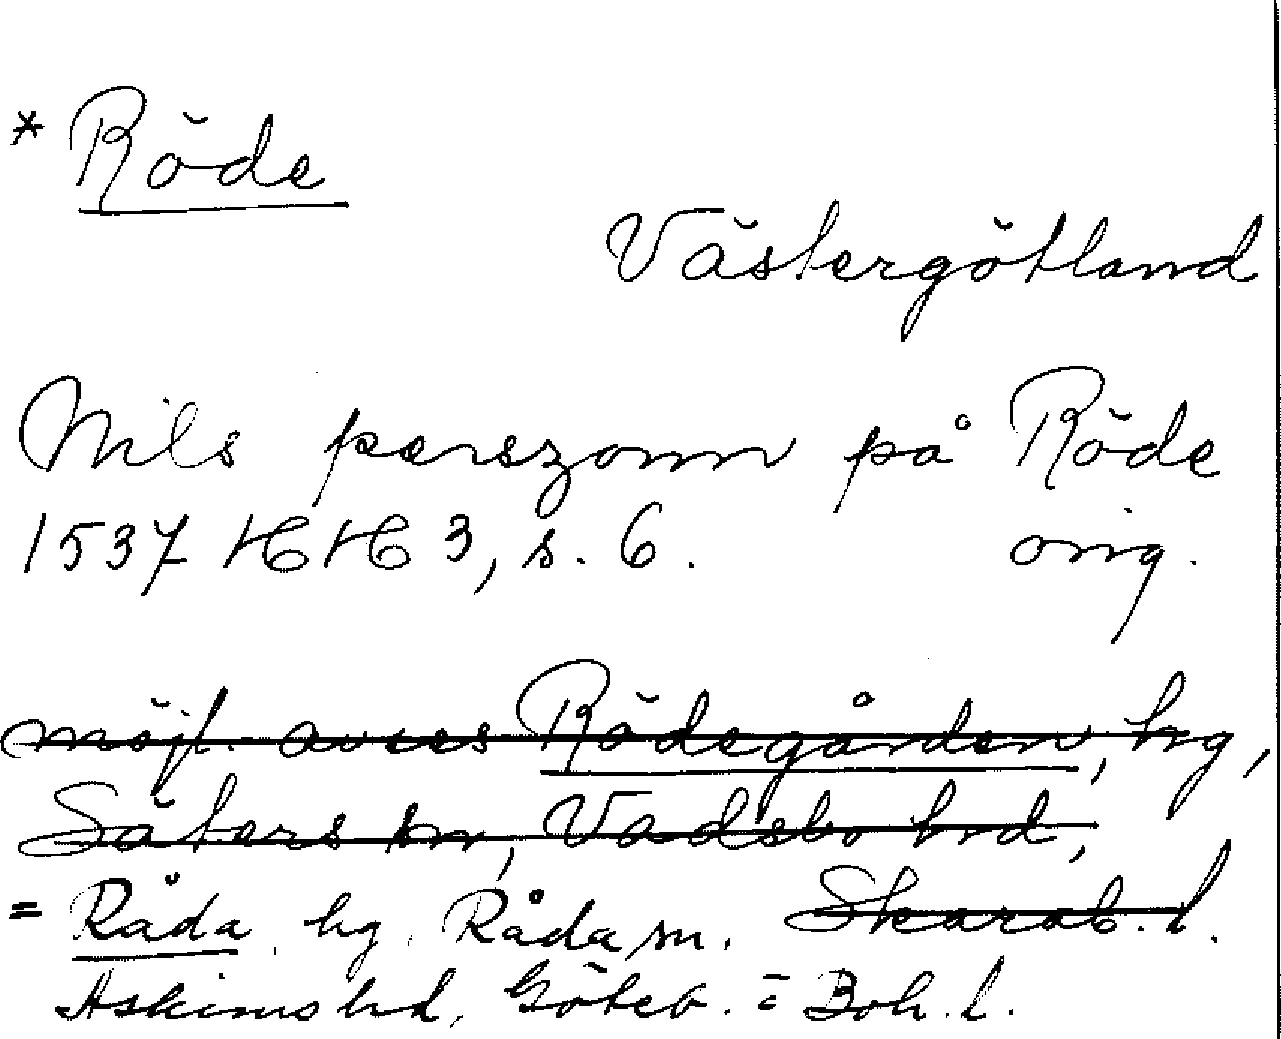 * Röde
Västergötland
Nils perszonn på Röde
1537 HH 3, s. 6. orig.
möjl. avses Rödegården, hg,
Säters sn, Vadsbo hrd,
Skarab. l.
= Råda, hg, Råda sn.
Askims hd, Göteb. = Boh. l.